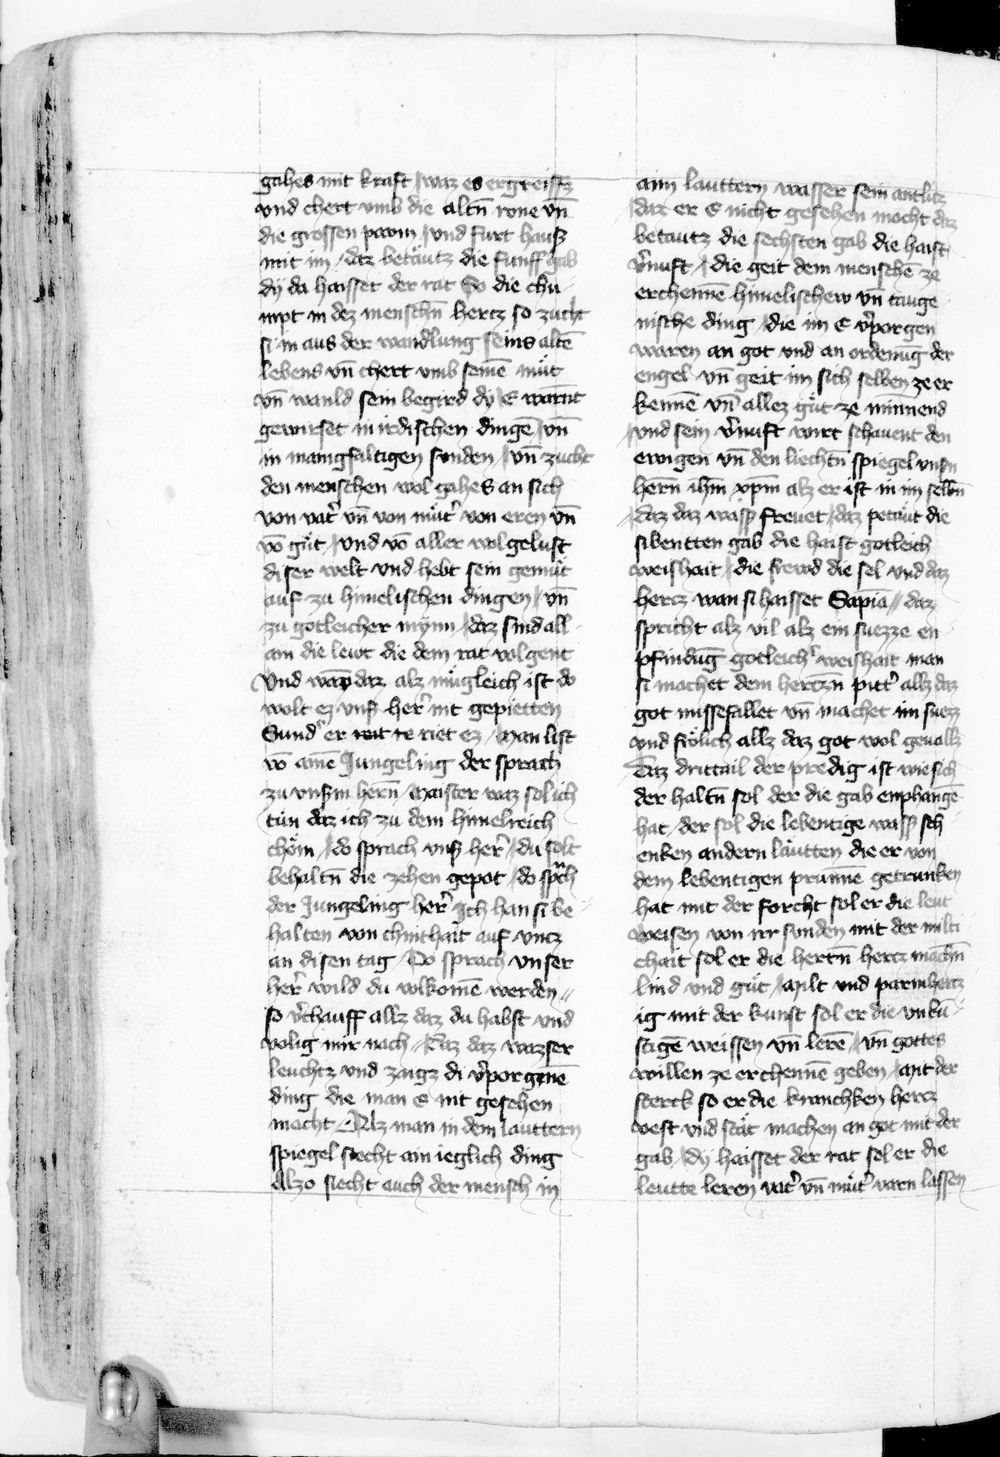 gahes mit kraft / waz es ergreifft
vnd chert vmb die altn̄ rone vn̄
die grossen pawm / vnd furt hauſz
mit im / daz betäutz die funff gab
dy da haisset der rat So die chu-
mpt in dez menschn̄ hertz so zucht
si in aus der wandlung seins altē
lebens vn̄ chert vmb seinē müt
vn̄ wanld sein begird dy E warnt
gewurſet in irdischen dingē / vn̄
in manigfaltigen sunden / vn̄ zucht
den menschen wol gahes an sich
von vat' vn̄ von müt' von eren vn̄
vō güt / vnd vō aller wolgelust
diser welt vnd hebt sein gemüt
auf zu himelischen dingen / vn̄
zu gotleicher mynn / daz sind all-
ain die lewt die dem rat volgent
Vnd wan daz alz mügleich ist do
wolt ez vnſz her' nit gepietten
Sund' er riet ez / Man list
vō ainē Jungeling der sprach
zu vnſzm hern̄ / Maister waz sol ich
tün daz ich zu dem himelreich
chöm / do sprach vnſz her' / du solt
behaltn̄ die zehen gepot / do spch
der Jungeling her' Ich han si be-
halten von chinthait auf vncz
an disen tag / Do sprach vnser
her' wild du volkomē werden //
so v'chauff allz daz du habst vnd
volig mir nach / Daz daz wazser
leuchtz vnd zaigz di v'porgenē
ding die man E nit gesehen
macht / Alz man in dem lauttern
spiegel siecht ain ieglich ding
Alzo siecht auch der mensch in
aim lauttern wasser sein antlicz
/ daz er E nicht gesehen mocht daz
betautz die sechsten gab die haist
v'nuft / die geit dem menschē ze
erchennē himelischew vn̄ tauge
nische ding / die im E v'porgen
waren an got vnd an ordenūg der
engel vn̄ geit im sich selben ze er
kennē vn̄ allez güt ze minnend
/ vnd sein v'nuft wirt schauent den
ewigen vn̄ den liechtn̄ spiegel vnsn
hern̄ ihm̄ xpm̄ alz er ist in im selbn̄
/ daz daz wasſz freuet / daz petäut die
sibentten gab die haist gotleich
weishait / die frewd die sel vnd daz
hercz wan si haisset Sapiā // daz
spricht alz vil alz ein suezze en-
pfindūg gotleich' weishait man
si machet dem hertzn̄ pitt' allz daz
got missefallet vn̄ machet im suezz
vnd frölich allz daz got wol geuallz
Daz drittail der predig ist wie sich
der haltn̄ sol der die gab enphangē
hat / der sol die lebentige wasſz sch-
enken andern läutten die er von
dem lebentigen prunnē getrunken
hat mit der forcht sol er die leut
weisen von irr sunden mit der milti
chait sol er die hertn̄ hercz machn̄
lind vnd güt / Milt vnd parmhertz
ig mit der kunst sol er die vnkū-
stigē weissen vn̄ lerē / vn̄ gottes
willen ze erchennē geben / Mit der
sterck so er die kranchken hercz
vest vnd stät machen an got mit der
gab / dy haisset der rat sol er die
leutte leren vat' vn̄ müt' varn lassen